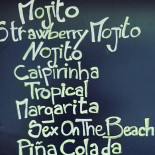 Mojito
Strawberry Mojito
Nojito
Caipirinha
Tropical
Margarita
Sex On The Beach
Piña Colada